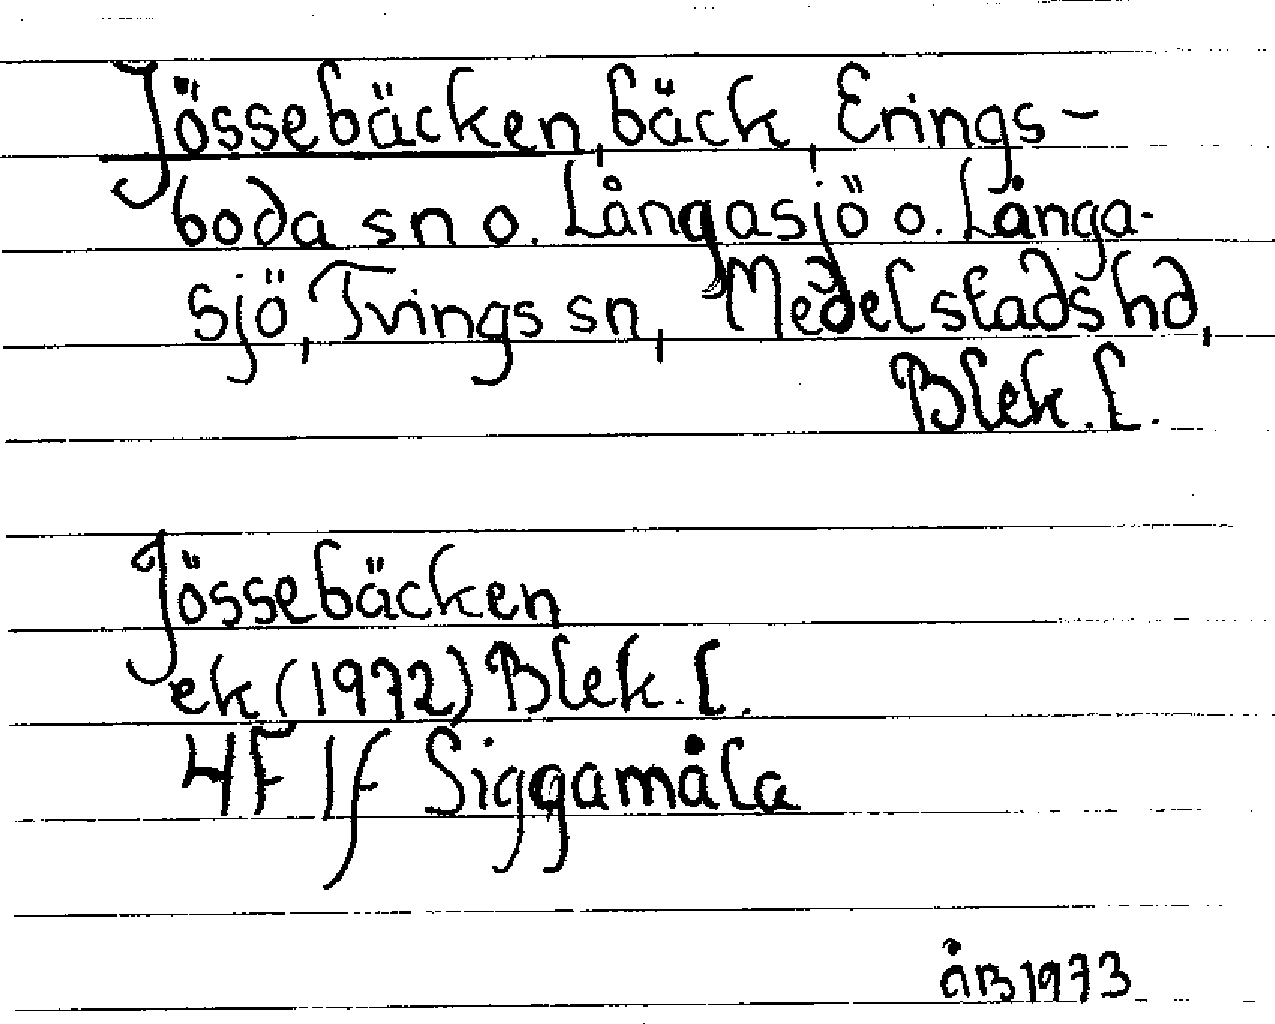 Jössebäcken, bäck, Erings-
boda sn o. Långasjö o. Långa-
sjö, Tvings sn, Medelstads hd,
Blek. l.
Jössebäcken
ek (1972) Blek. l.
4F 1f Siggamåla
åB 1973